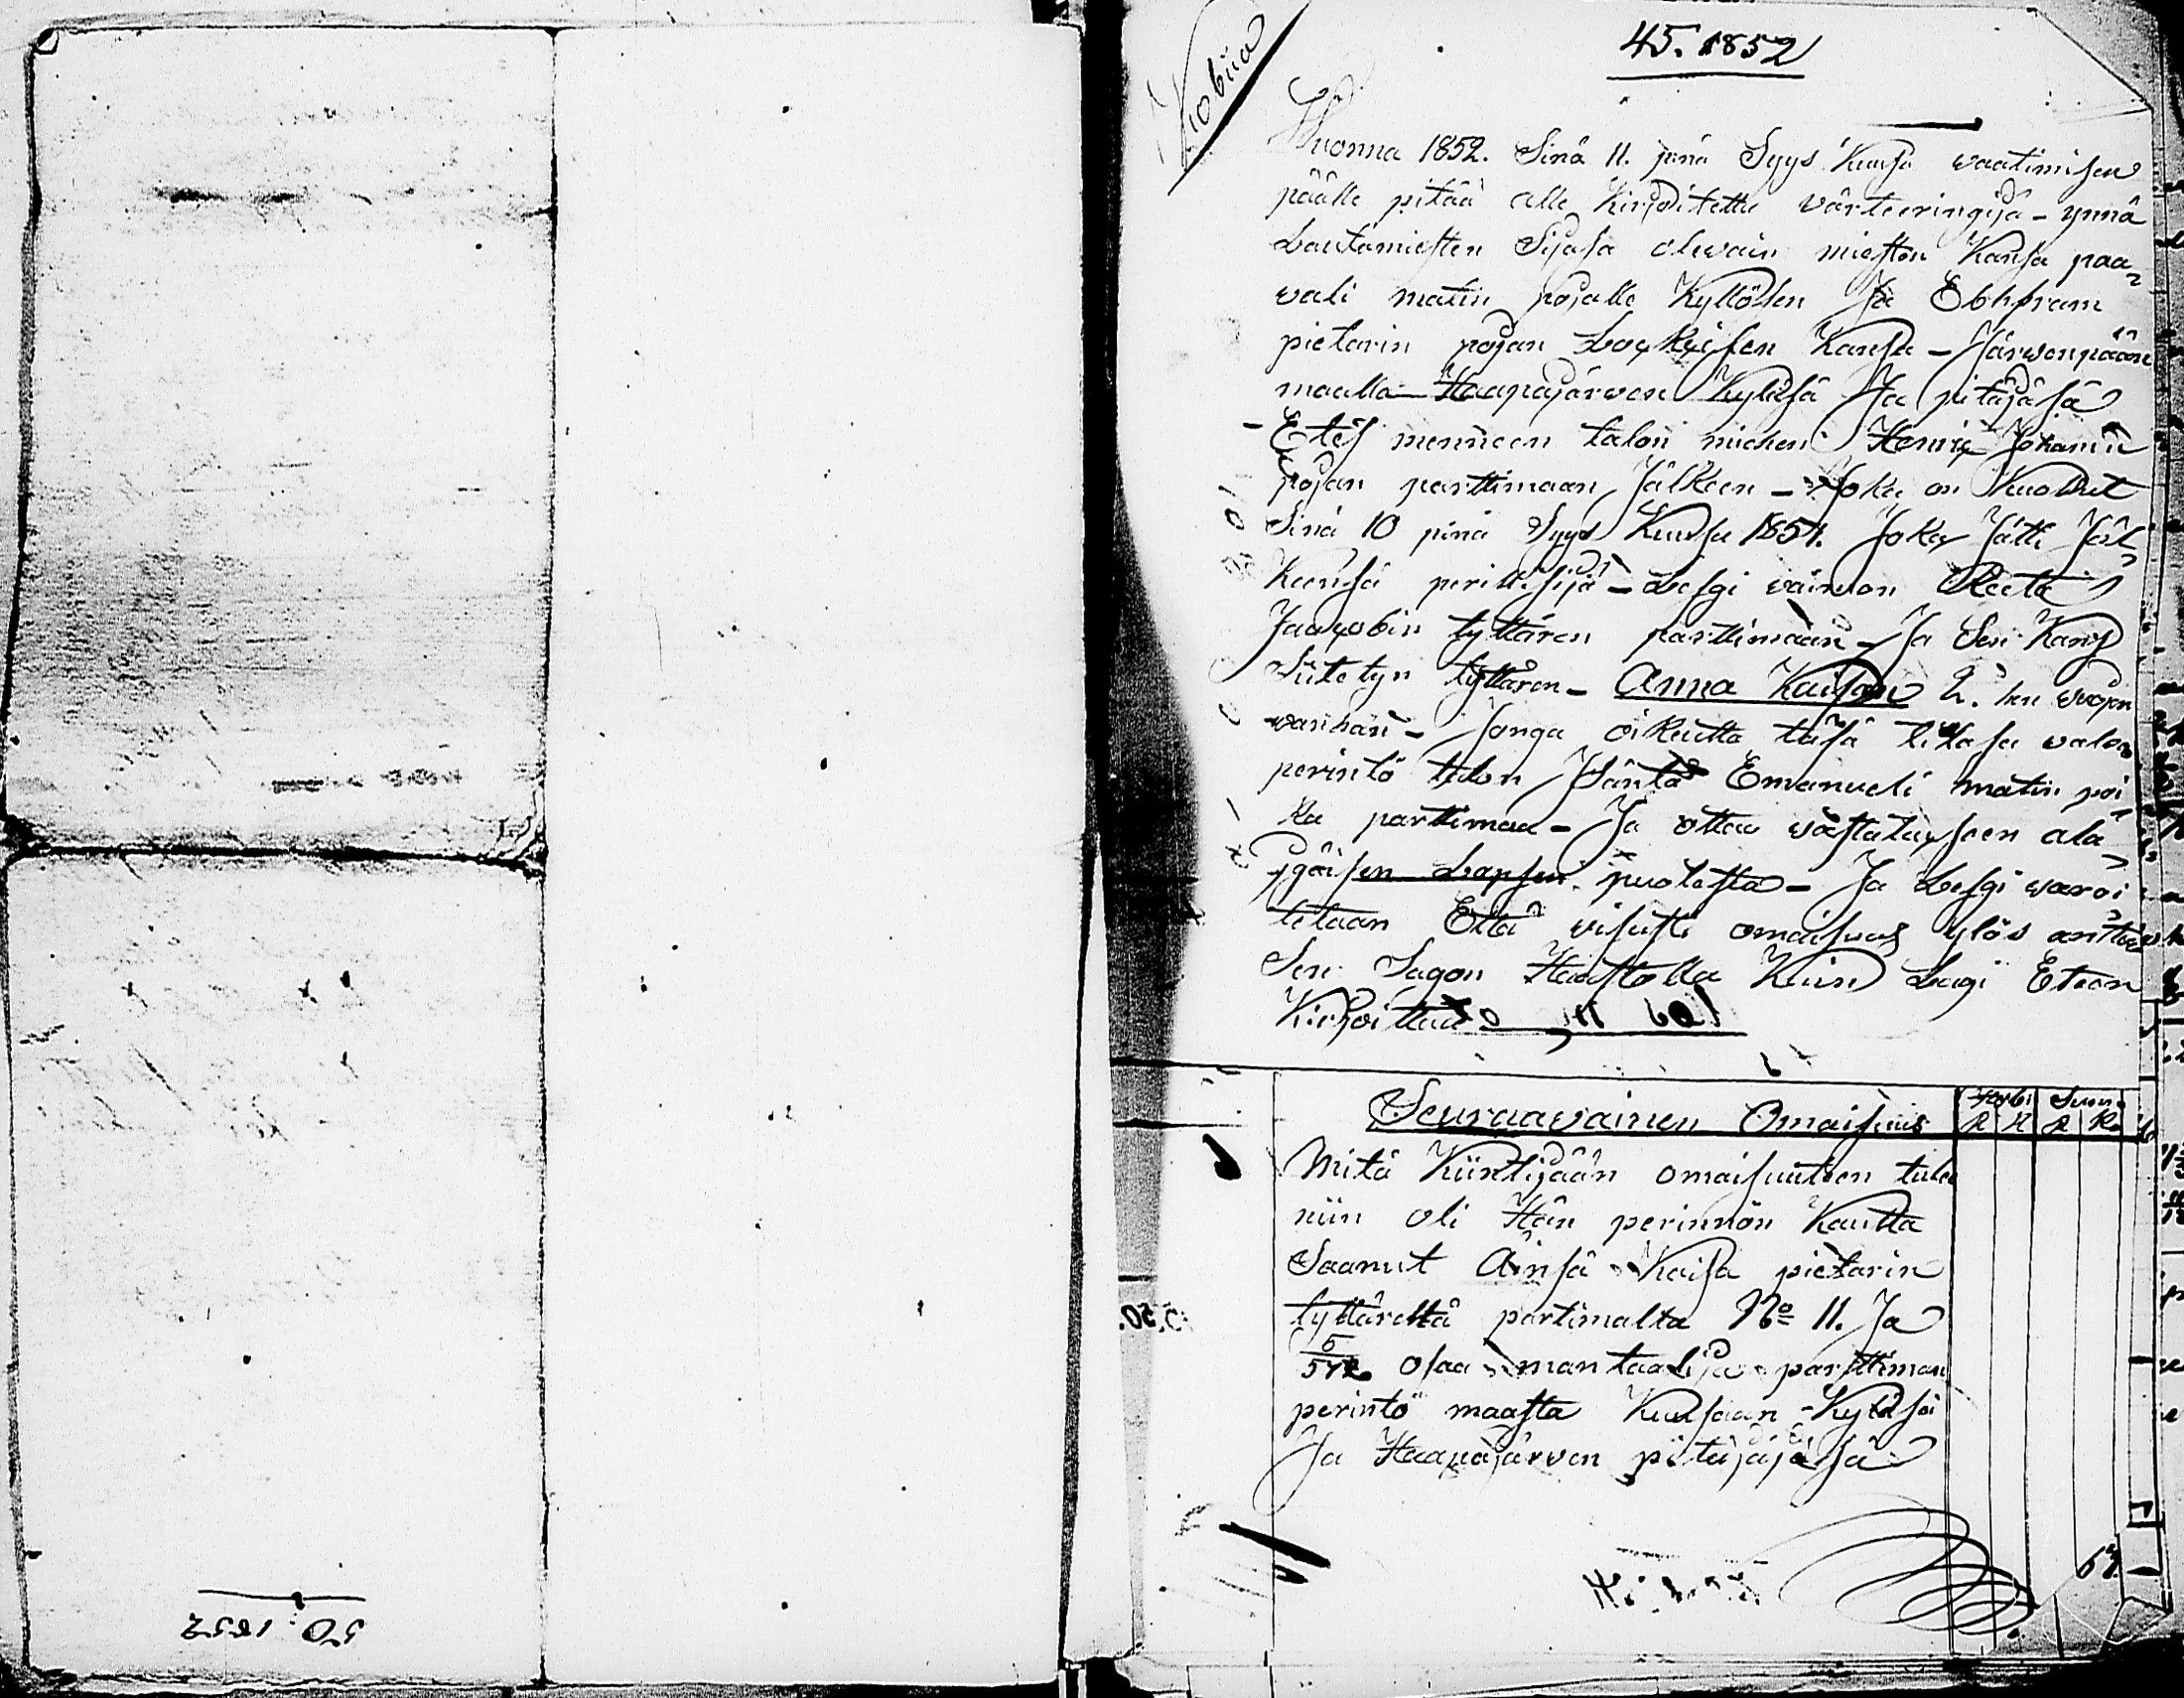 45. 1852
Kobiia
Wuonna 1852. Sinä 11. pnä Syys Kuusa waatimisen
päälle pitää alle Kirjoitettu värteeringijä - ynnä
Lautamiesten Sijasa olewain miesten Kansa paa-
wali matin pojalle Kyllösen Ja Ebhfram
pietarin pojan Kansa - Järwenpään
maalla Haapajärwen Kyläsä Ja pitäjäsä
Etes menneen talon miehen Henrix Johanin
pojan parttimaan Jälkeen - Joka on Kuollut
Sinä 10 pnä Syys Kuusa 1851. Joka Jätti Jäl-
keensä perillisijä - Lesgi waimon Reeta
Jaacobin tyttären parttimaan - Ja Sen Kans
Siitetyn tyttären - Anna Kaisan 2. hen wuojen
wanhan - Jonga oikeutta täsä tilasa waloo
perintö talon Isäntä Emanueli matin poi
ka parttimaa - Ja ottaa wastatuxseen ala
Igäisen Lapsen puolesta - Ja Lesgi waroi
tetaan Että wisusti omaisuus ylös anttaa
Sen Sagon Haastolla Kuin Lagi Eteen
Kirjoittaa
Seuraawainen Omaisuus
R K R K
Mitä Kiintijään omaisuuteen tulee
niin oli Hän perinnön Kautta
Saanut Äinsä Kaisa pietarin
tyttäreltä partimalta No 11. Ja
5/572 osaa mantaalija parttiman
perintö maasta Kuusaan Kyläsä
Ja Haapajärwen pitäjäjäsä
67.
50. 1852